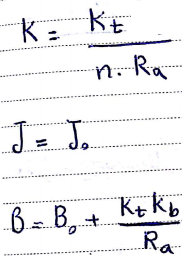 K = Kt / n. Ra
J = J₀
B = B₀ + Kt Kb / Ra